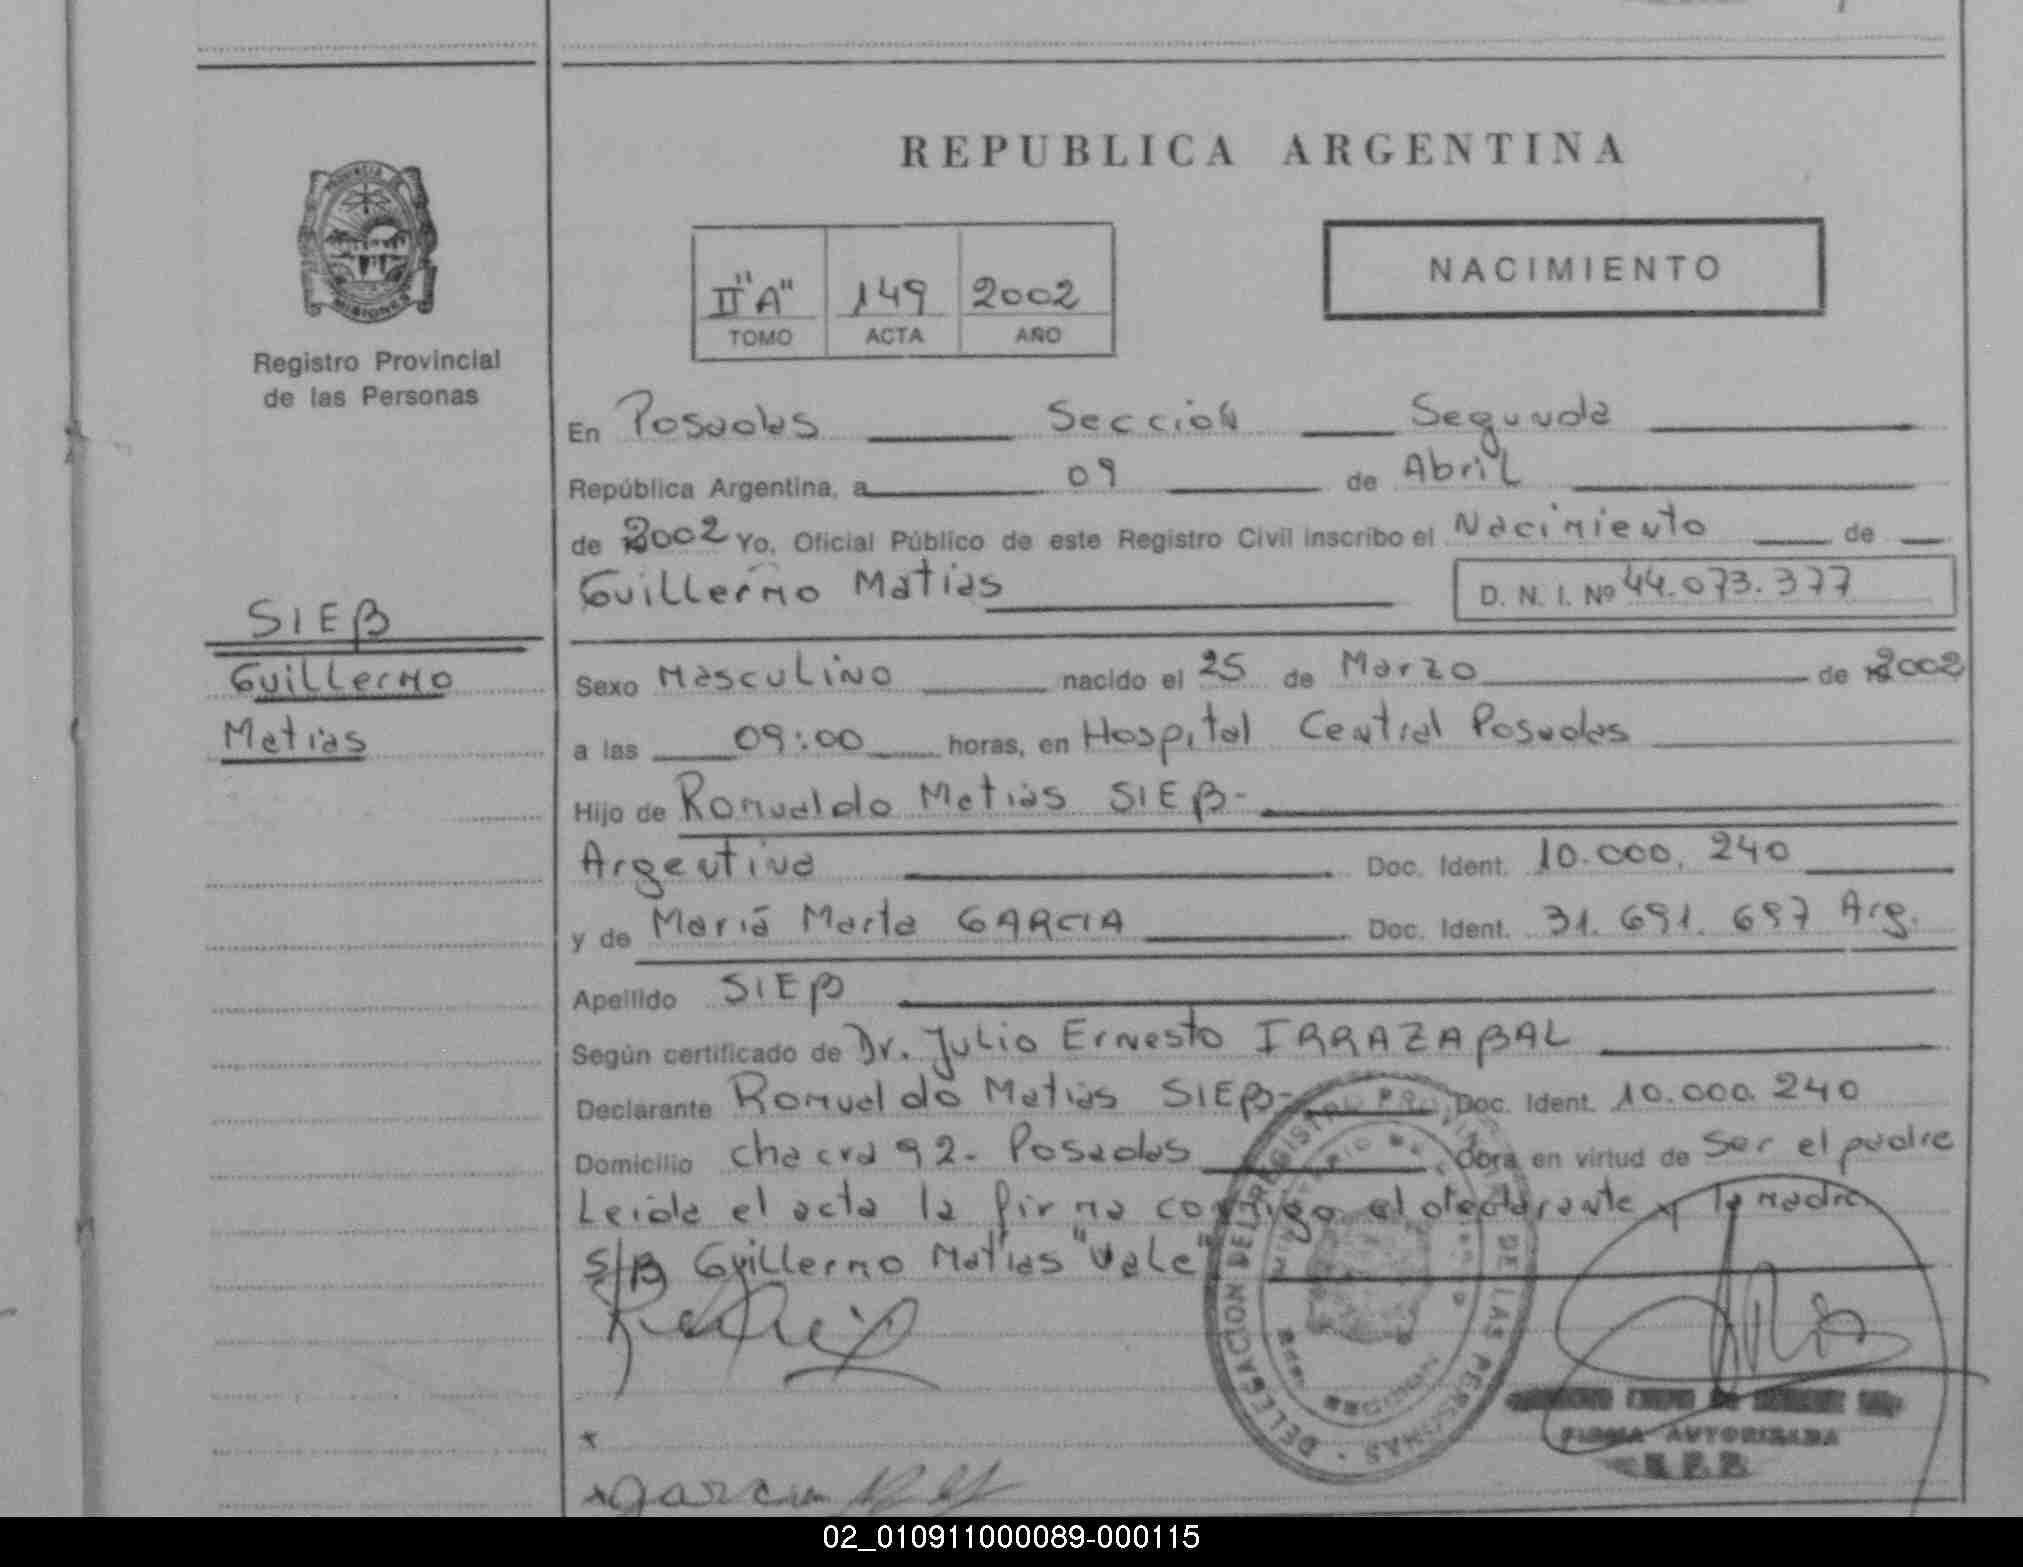 REPUBLICA ARGENTINA
PROVINCIA DE
MISIONES
Registro Provincial
de las Personas
II "A" 149 2002
TOMO ACTA AÑO
NACIMIENTO
En Posadas Sección Segunda
República Argentina, a 09 de Abril
de 2002 Yo, Oficial Público de este Registro Civil inscribo el Nacimiento de
Guillermo Matias D. N. I. Nº 44.073.377
SIEβ
Guillermo
Matias
Sexo Masculino nacido el 25 de Marzo de 2002
a las 09:00 horas, en Hospital Central Posadas
Hijo de Romualdo Matias SIEβ-
Argentina Doc. Ident. 10.000.240
y de Mariá Marta GARCIA Doc. Ident. 31.691.697 Arg.
Apellido SIEβ
Según certificado de Dr. Julio Ernesto IRRAZABAL
Declarante Romualdo Matias SIEβ- Doc. Ident. 10.000.240
Domicilio chacra 92- Posadas obra en virtud de Ser el padre
Leida el acta la firma conmigo el declarante y la madre
S/B Guillermo Matias "Vale"
DELEGACION DEL REGISTRO PROVINCIAL DE LAS PERSONAS
FIRMA AUTORIZADA
Garcia
02_010911000089-000115